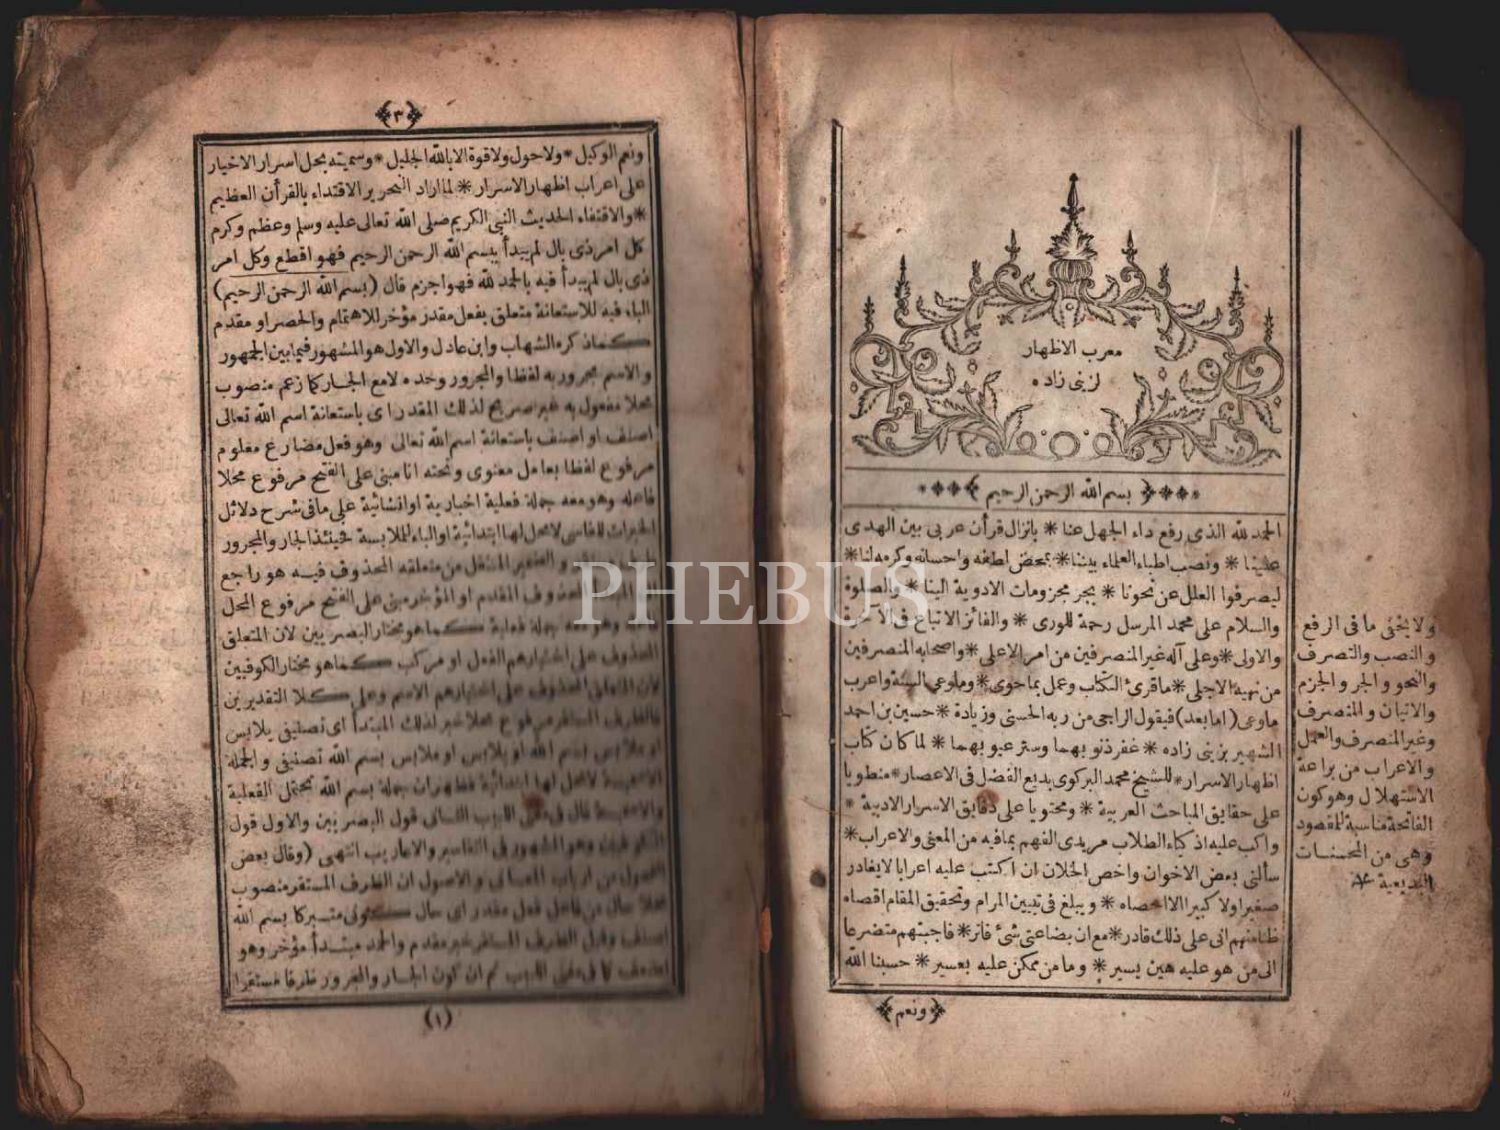 معرب الاظهار
لزینی زاده
بسم الله الرحمن الرحيم
الحمد لله الذى رفع داء الجهل عنا * بانزال قرأن عربى بين الهدى
علينا * ونصب اطباء العلماء بيننا * بمحض لطفه واحسانه وكرمه لنا *
ليصرفوا العلل عن نحونا * بجر مجزومات الادوية الينا * والصلوة
والسلام على محمد المرسل رحمة للورى * والفائز الاتباع فى الآخرة
والاولى * وعلى آله غير المنصرفين من امر الاعلى * واصحابه المنصرفين
من نهيه الاجلى * ماقرئ الكتاب وعمل بماحوى * وماوعى السنة واعرب
ماوعى (امابعد) فيقول الراجى من ربه الحسنى وزيادة * حسين بن احمد
الشهير بزينى زاده * غفر ذنوبهما وستر عيوبهما * لما كان كتاب
اظهار الاسرار * للشيخ محمد البركوى بديع الفضل فى الاعصار * منطويا
على حقايق المباحث العربية * ومحتويا على دقايق الاسرار الادبية *
واكب عليه اذكياء الطلاب مريدى الفهم بمافيه من المعنى والاعراب *
سألنى بعض الاخوان واخص الخلان ان اكتب عليه اعرابا لايغادر
صغيرا ولا كبيرا الااحصاه * ويبلغ فى تبيين المرام وتحقيق المقام اقصاه
ظنامنهم انى على ذلك قادر * مع ان بضاعتى شئ فاتر * فاجبتهم متضرعا
الى من هو عليه هين يسير * وما من ممكن عليه بعسير * حسبنا الله
ونعم
ولا يخفى ما فى الرفع
والنصب والتصرف
والنحو والجر والجزم
والاتيان والمنصرف
وغير المنصرف والعمل
والاعراب من براعة
الاستهلال وهو كون
الفاتحة مناسبة للمقصود
وهى من المحسنات
البديعية
٣
ونعم الوكيل * ولا حول ولا قوة الا بالله الجليل * وسميته بحل اسرار الاخيار
على اعراب اظهار الاسرار * لما اراد النحرير الاقتداء بالقرأن العظيم
* والاقتفاء لحديث النبى الكريم صلى الله تعالى عليه وسلم وعظم وكرم
كل امر ذى بال لم يبدأ ببسم الله الرحمن الرحيم فهو اقطع وكل امر
ذى بال لم يبدأ فيه بالحمد لله فهو اجزم قال (بسم الله الرحمن الرحيم)
الباء فيه للاستعانة متعلق بفعل مقدر مؤخر للاهتمام والحصر او مقدم
كما ذكره الشهاب وابن عادل والاول هو المشهور فيما بين الجمهور
والاسم مجرور به لفظا والمجرور وحده لا مع الجار كما زعم منصوب
محلا مفعول به غير صريح لذلك المقدر اى باستعانة اسم الله تعالى
اصنف او اصنف باستعانة اسم الله تعالى وهو فعل مضارع معلوم
مرفوع لفظا بعامل معنوى وتحته انا مبنى على الفتح مرفوع محلا
فاعله وهو معه جملة فعلية اخبارية او انشائية على ما فى شرح دلائل
الخيرات للفاسى لا محل لها ابتدائية او الباء للملابسة فحينئذ الجار والمجرور
والضمير المنتقل من متعلقه المحذوف فيه هو راجع
المحذوف المقدم او المؤخر مبنى على الفتح مرفوع المحل
وهو معه جملة فعلية كما هو مختار البصريين لان المتعلق
المحذوف على اختيارهم الفعل او مركب كما هو مختار الكوفيين
لان المتعلق المحذوف على اختيارهم الاسم وعلى كلا التقديرين
فالظرف المستقر مرفوع محلا خبر لذلك المبتدأ اى تصنيفى يلابس
او ملابس بسم الله او يلابس او ملابس بسم الله تصنيفى والجملة
الاسمية لا محل لها ابتدائية فظهر ان جملة بسم الله تحتمل الفعلية
والاسمية قال فى مغنى اللبيب الثانى قول البصريين والاول قول
الكوفيين وهو المشهور فى التفاسير والاعاريب انتهى (وقال بعض
الفحول من ارباب المعانى والاصول ان الظرف المستقر منصوب
محلا حال من فاعل فعل مقدر اى حال كونى متبركا بسم الله
اصنف وقيل الظرف المستقر خبر مقدم والحمد مبتدأ مؤخر وهو
ضعيف كما فى مغنى اللبيب ثم ان كون الجار والمجرور ظرفا مستقرا
(١)
PHEBUS